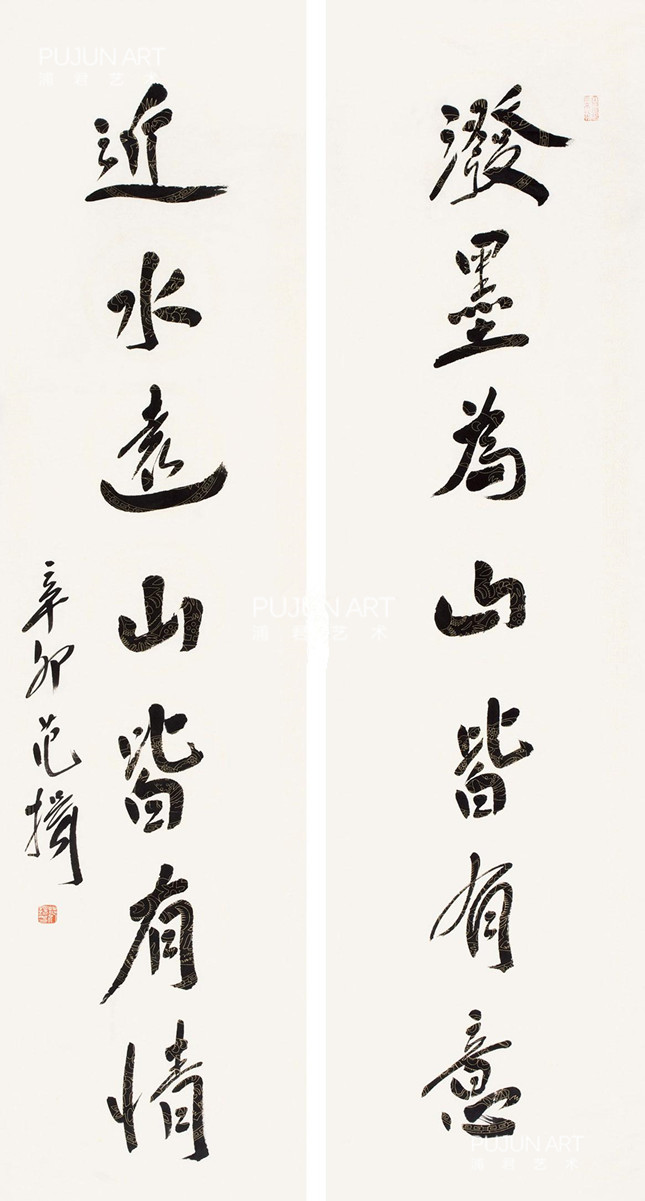 潑墨為山皆有意
近水遠山皆有情
辛卯范揚
PUJUN ART
浦君艺术
PUJUN ART
浦君艺术
PUJUN ART
浦君艺术